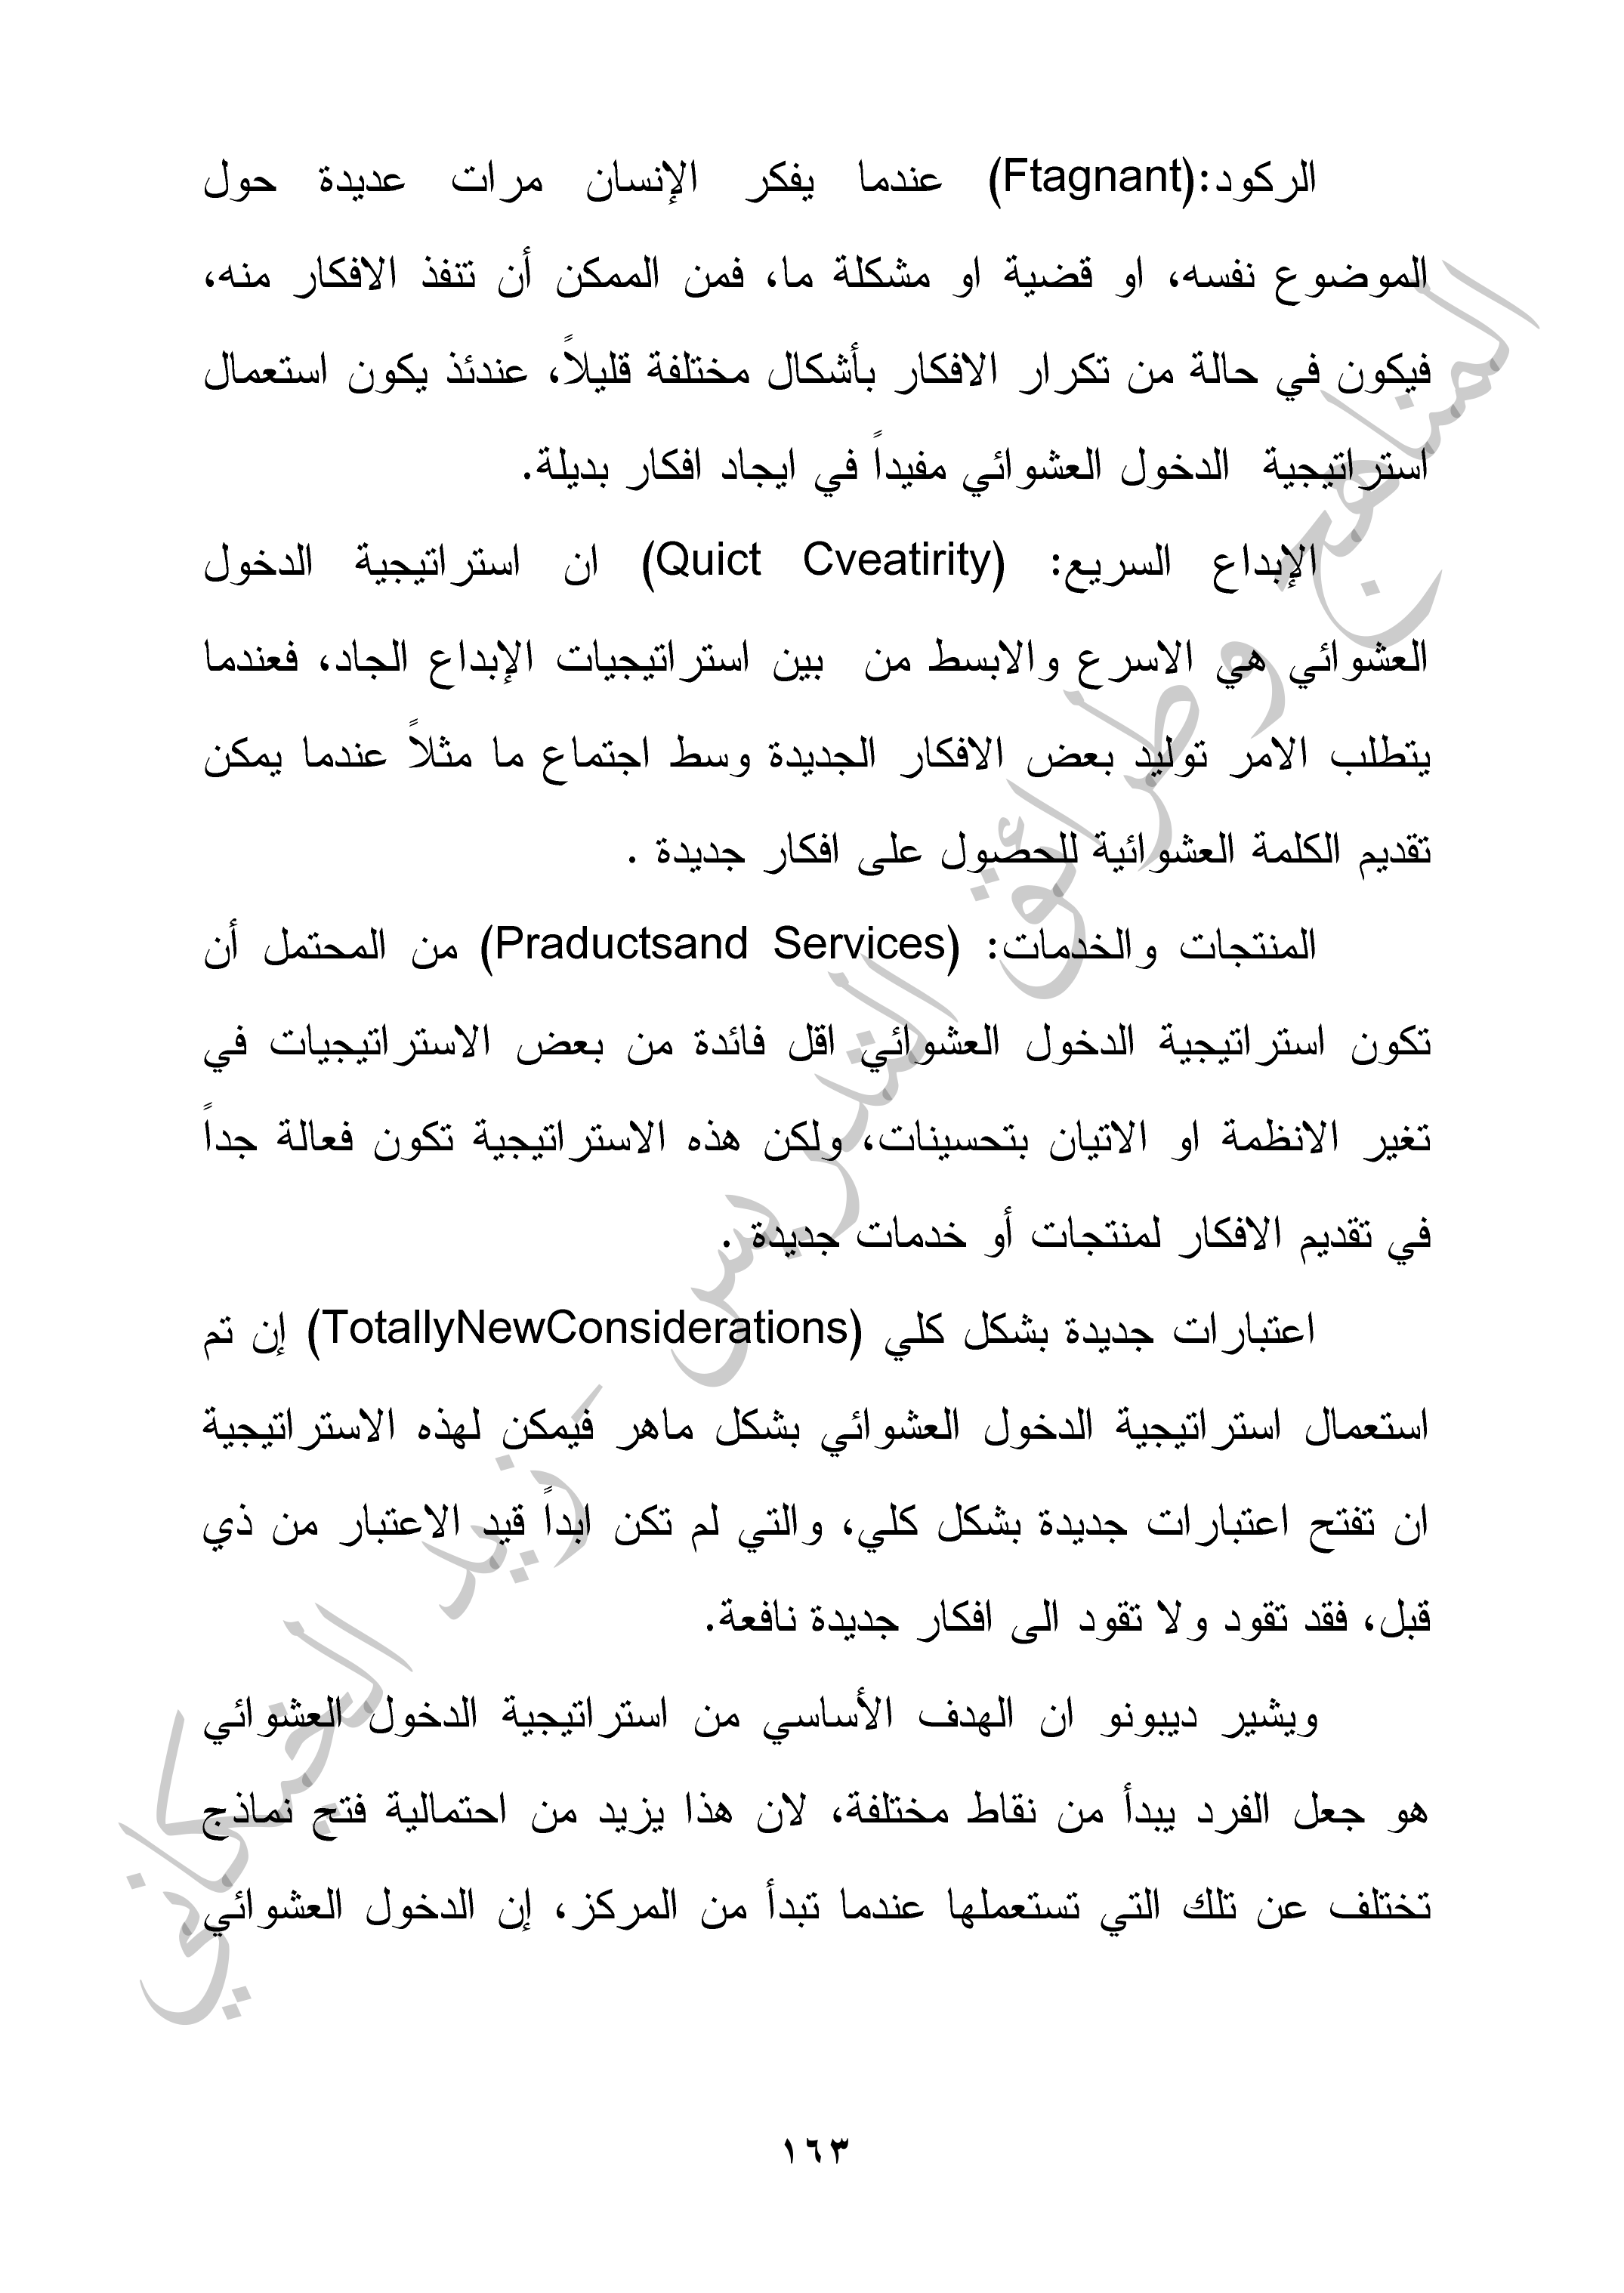 الركود:(Ftagnant) عندما يفكر الإنسان مرات عديدة حول
الموضوع نفسه، او قضية او مشكلة ما، فمن الممكن أن تنفذ الافكار منه،
فيكون في حالة من تكرار الافكار بأشكال مختلفة قليلاً، عندئذ يكون استعمال
استراتيجية الدخول العشوائي مفيداً في ايجاد افكار بديلة.
الإبداع السريع: (Quict Cveatirity) ان استراتيجية الدخول
العشوائي هي الاسرع والابسط من بين استراتيجيات الإبداع الجاد، فعندما
يتطلب الامر توليد بعض الافكار الجديدة وسط اجتماع ما مثلاً عندما يمكن
تقديم الكلمة العشوائية للحصول على افكار جديدة .
المنتجات والخدمات: (Praductsand Services) من المحتمل أن
تكون استراتيجية الدخول العشوائي اقل فائدة من بعض الاستراتيجيات في
تغير الانظمة او الاتيان بتحسينات، ولكن هذه الاستراتيجية تكون فعالة جداً
في تقديم الافكار لمنتجات أو خدمات جديدة .
اعتبارات جديدة بشكل كلي (TotallyNewConsiderations) إن تم
استعمال استراتيجية الدخول العشوائي بشكل ماهر فيمكن لهذه الاستراتيجية
ان تفتح اعتبارات جديدة بشكل كلي، والتي لم تكن ابداً قيد الاعتبار من ذي
قبل، فقد تقود ولا تقود الى افكار جديدة نافعة.
ويشير ديبونو ان الهدف الأساسي من استراتيجية الدخول العشوائي
هو جعل الفرد يبدأ من نقاط مختلفة، لان هذا يزيد من احتمالية فتح نماذج
تختلف عن تلك التي تستعملها عندما تبدأ من المركز، إن الدخول العشوائي
المناهج وطرائق التدريس _ زيد الخيكاني
١٦٣